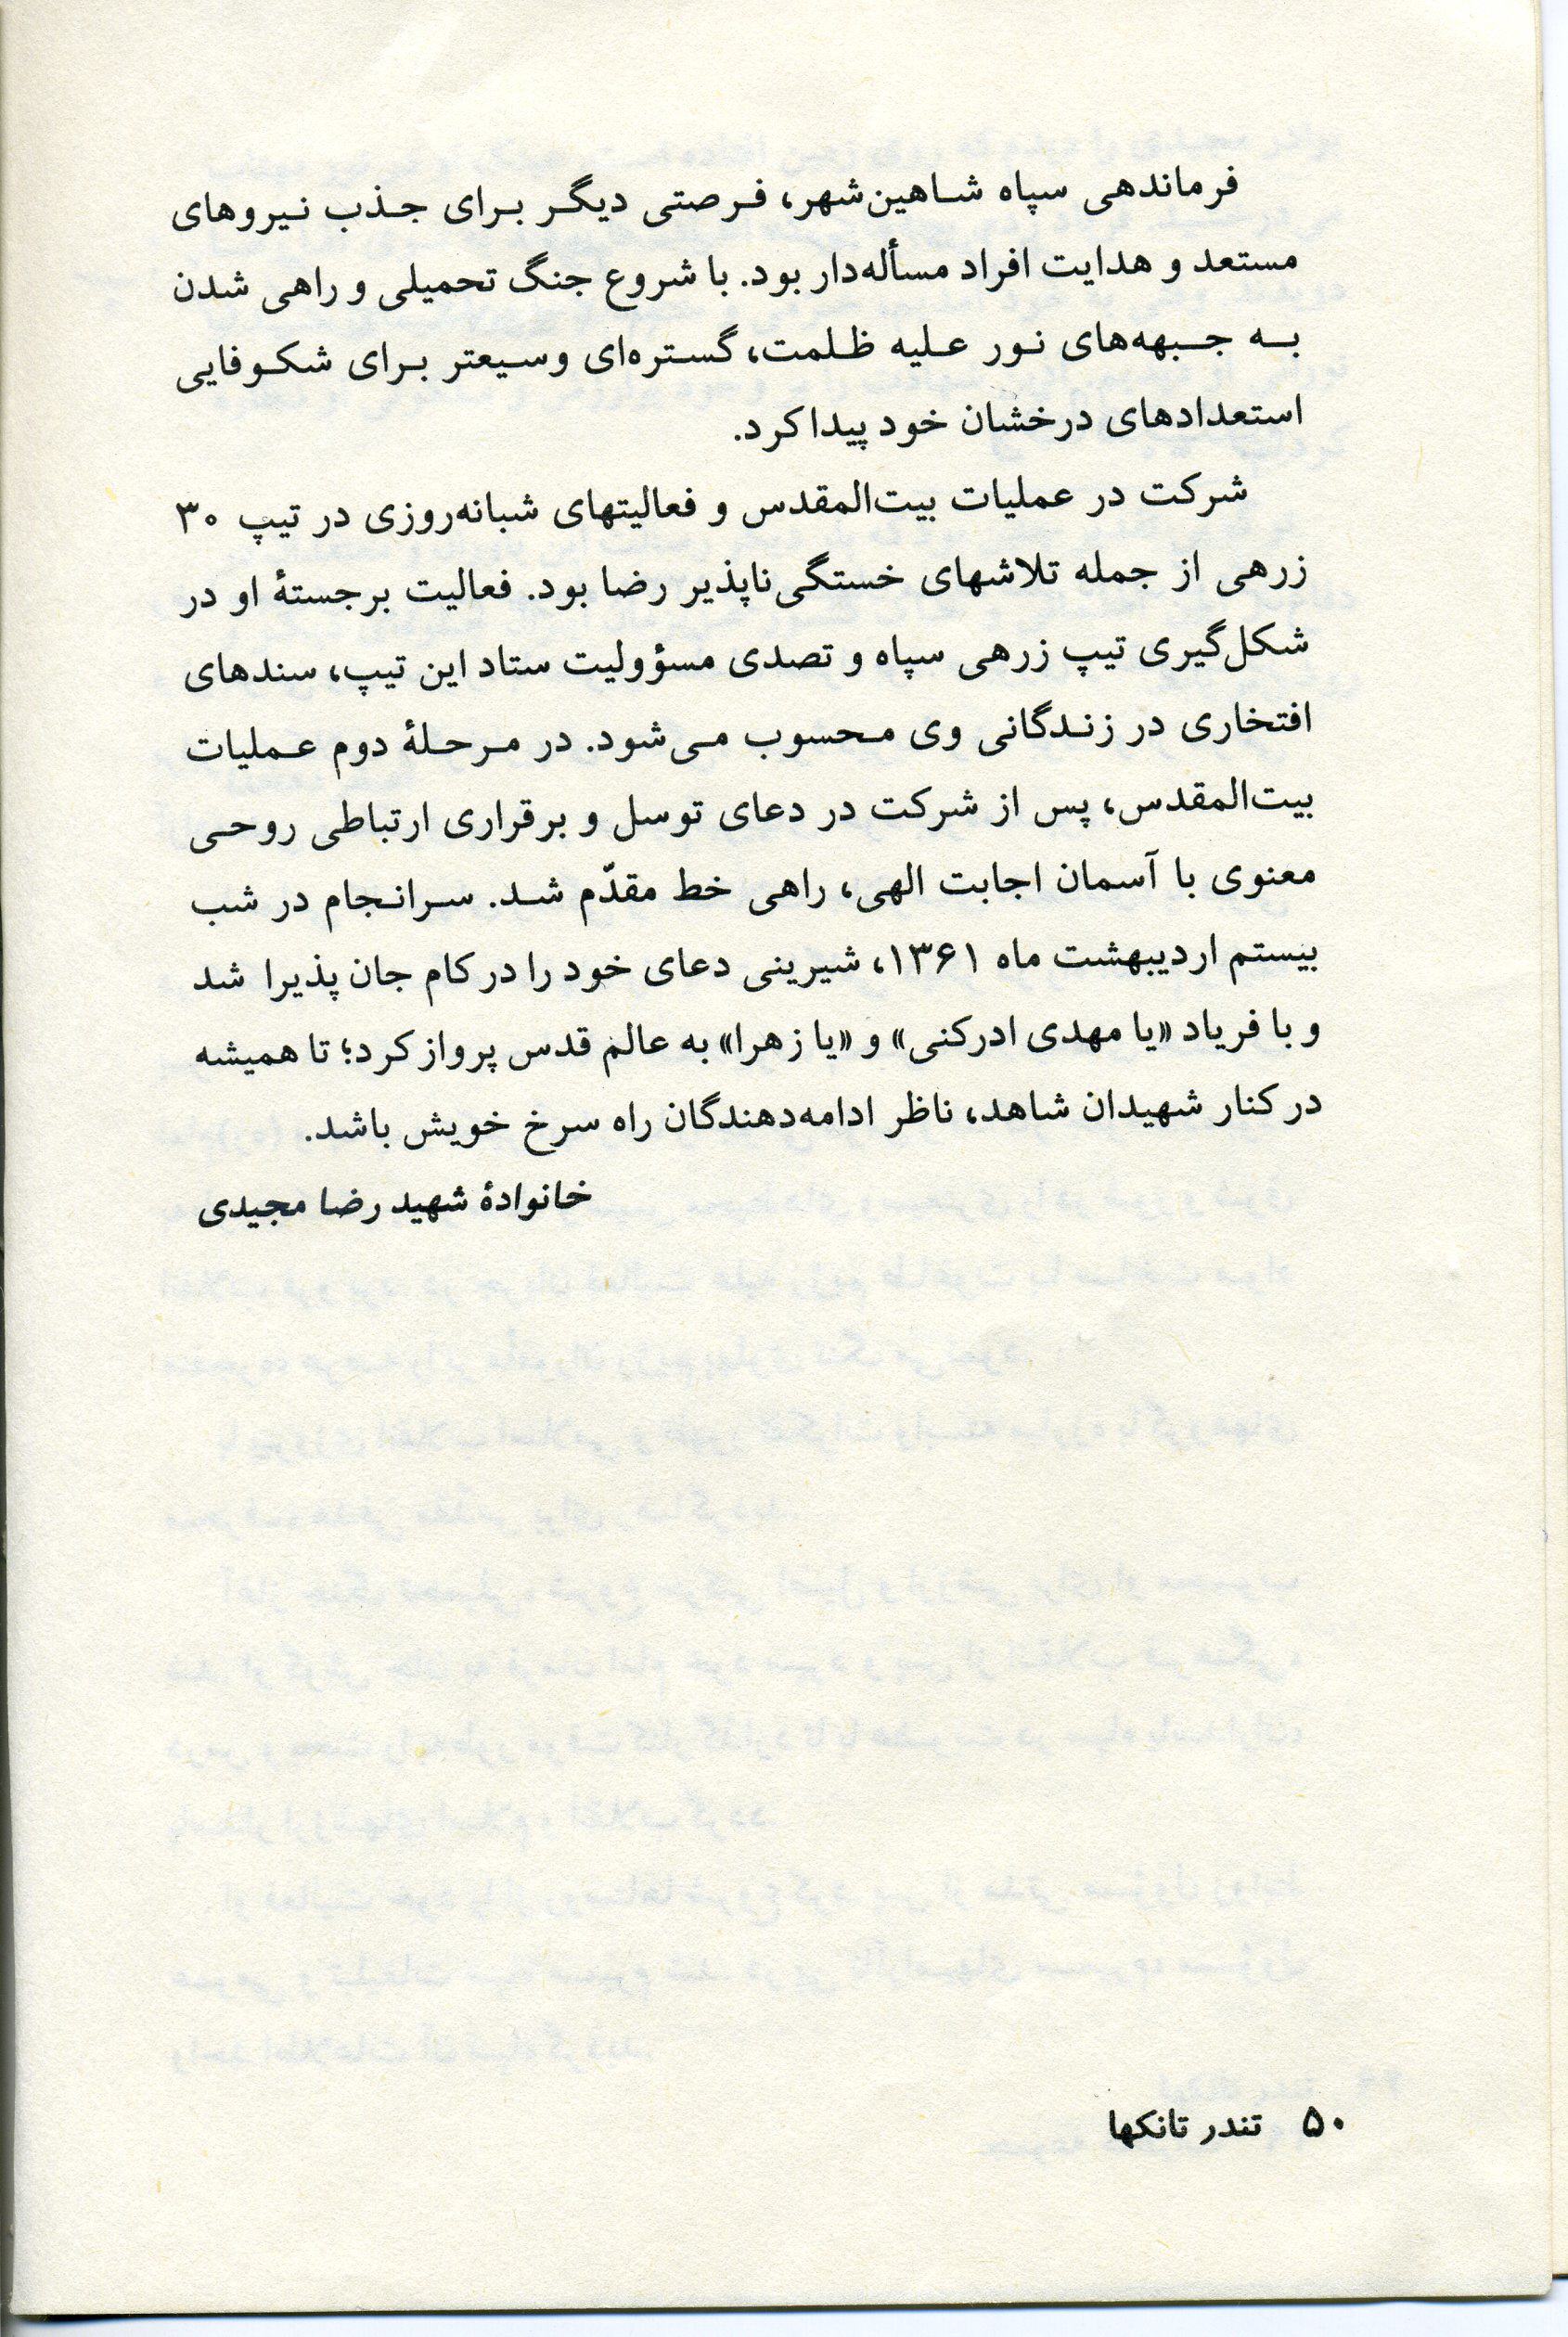 فرماندهی سپاه شاهین‌شهر، فرصتی دیگر برای جذب نیروهای
مستعد و هدایت افراد مسأله‌دار بود. با شروع جنگ تحمیلی و راهی شدن
به جبهه‌های نور علیه ظلمت، گستره‌ای وسیعتر برای شکوفایی
استعدادهای درخشان خود پیدا کرد.
شرکت در عملیات بیت‌المقدس و فعالیتهای شبانه‌روزی در تیپ ۳۰
زرهی از جمله تلاشهای خستگی‌ناپذیر رضا بود. فعالیت برجستۀ او در
شکل‌گیری تیپ زرهی سپاه و تصدی مسؤولیت ستاد این تیپ، سندهای
افتخاری در زندگانی وی محسوب می‌شود. در مرحلۀ دوم عملیات
بیت‌المقدس، پس از شرکت در دعای توسل و برقراری ارتباطی روحی
معنوی با آسمان اجابت الهی، راهی خط مقدّم شد. سرانجام در شب
بیستم اردیبهشت ماه ۱۳۶۱، شیرینی دعای خود را در کام جان پذیرا شد
و با فریاد «یا مهدی ادرکنی» و «یا زهرا» به عالم قدس پرواز کرد؛ تا همیشه
در کنار شهیدان شاهد، ناظر ادامه‌دهندگان راه سرخ خویش باشد.
خانوادۀ شهید رضا مجیدی
۵۰ تندر تانکها